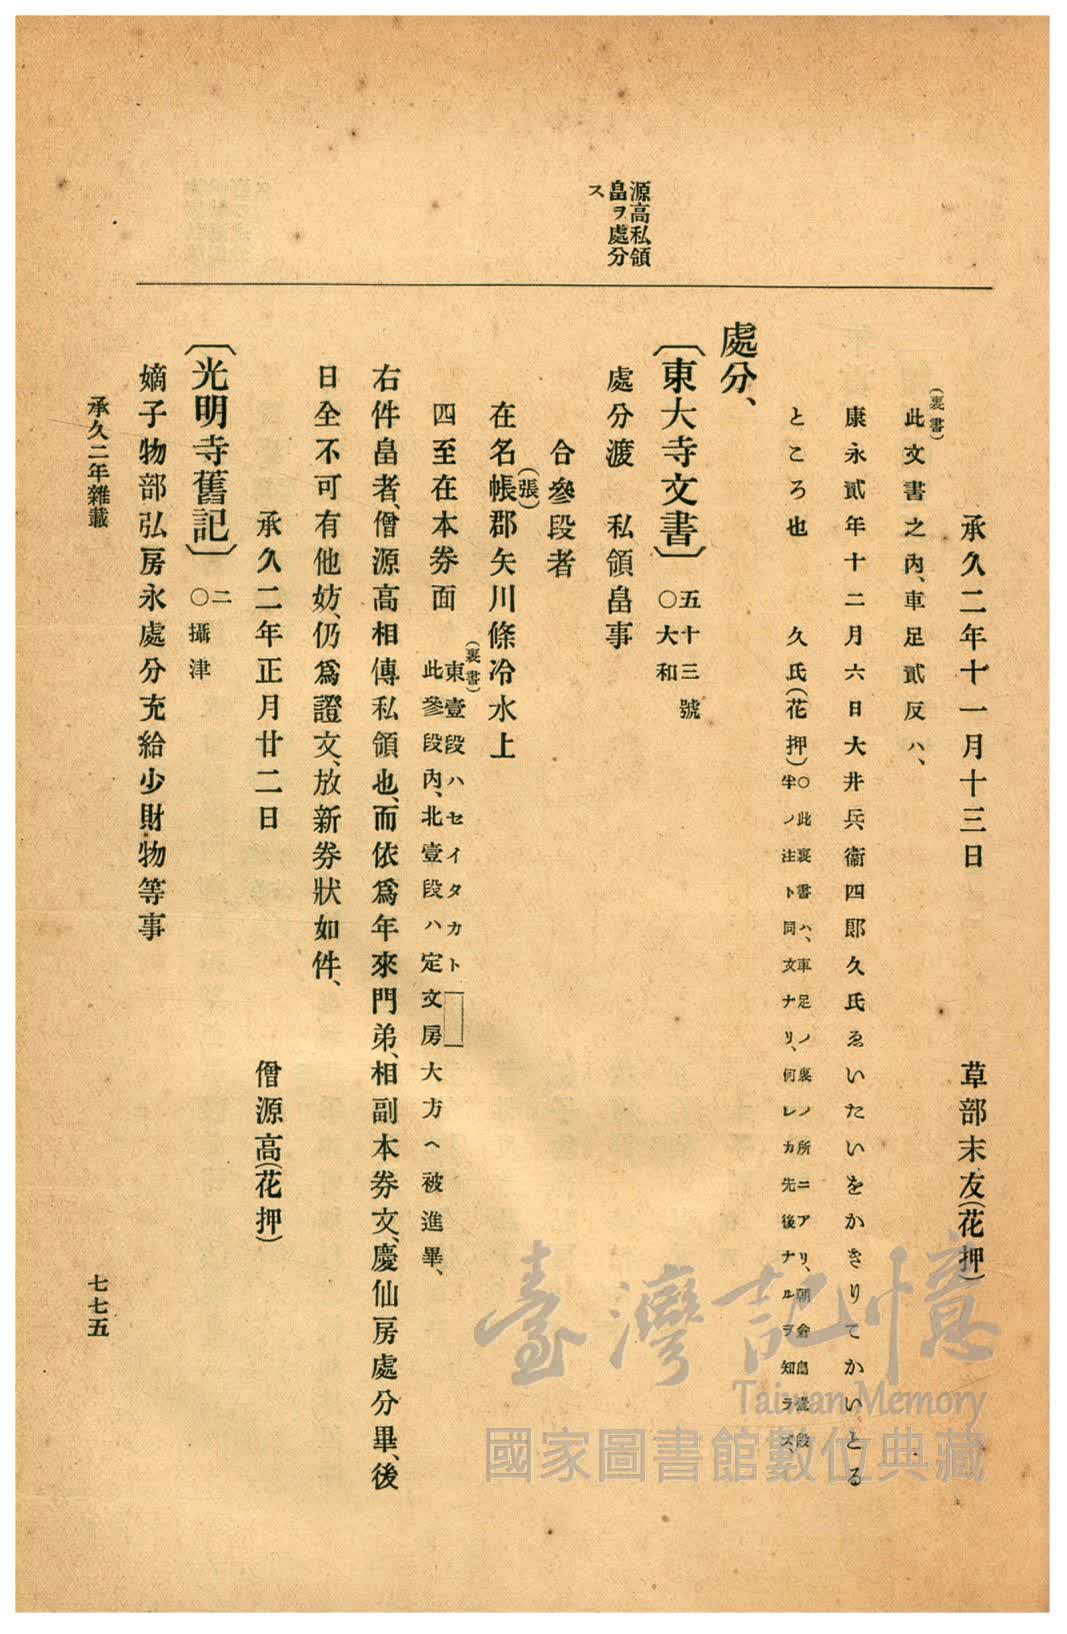 源高私領
畠ヲ處分
ス
承久二年十一月十三日　草部末友(花押)
(裏書)
此文書之內、車足貳反ハ、
康永貳年十二月六日大井兵衞四郎久氏ゑいたいをかきりてかいとる
ところ也　久氏(花押)
○此裏書ハ、車足ノ裏ノ所ニアリ、朝倉畠壹段
半ノ注ト同文ナリ、何レカ先後ナルヲ知ラズ、
處分、
〔東大寺文書〕
五十三號
○大和
處分渡　私領畠事
合參段者
在名帳郡矢川條冷水上
(張)
四至在本券面
(裏書)
東壹段ハセイタカト
此參段內、北壹段ハ定文房大方ヘ被進畢、
右件畠者、僧源高相傳私領也、而依爲年來門弟、相副本券文、慶仙房處分畢、後
日全不可有他妨、仍爲證文、放新券狀如件、
承久二年正月廿二日　僧源高(花押)
〔光明寺舊記〕
二
○攝津
嫡子物部弘房永處分充給少財物等事
承久二年雜載
七七五
臺灣記憶
Taiwan Memory
國家圖書館數位典藏